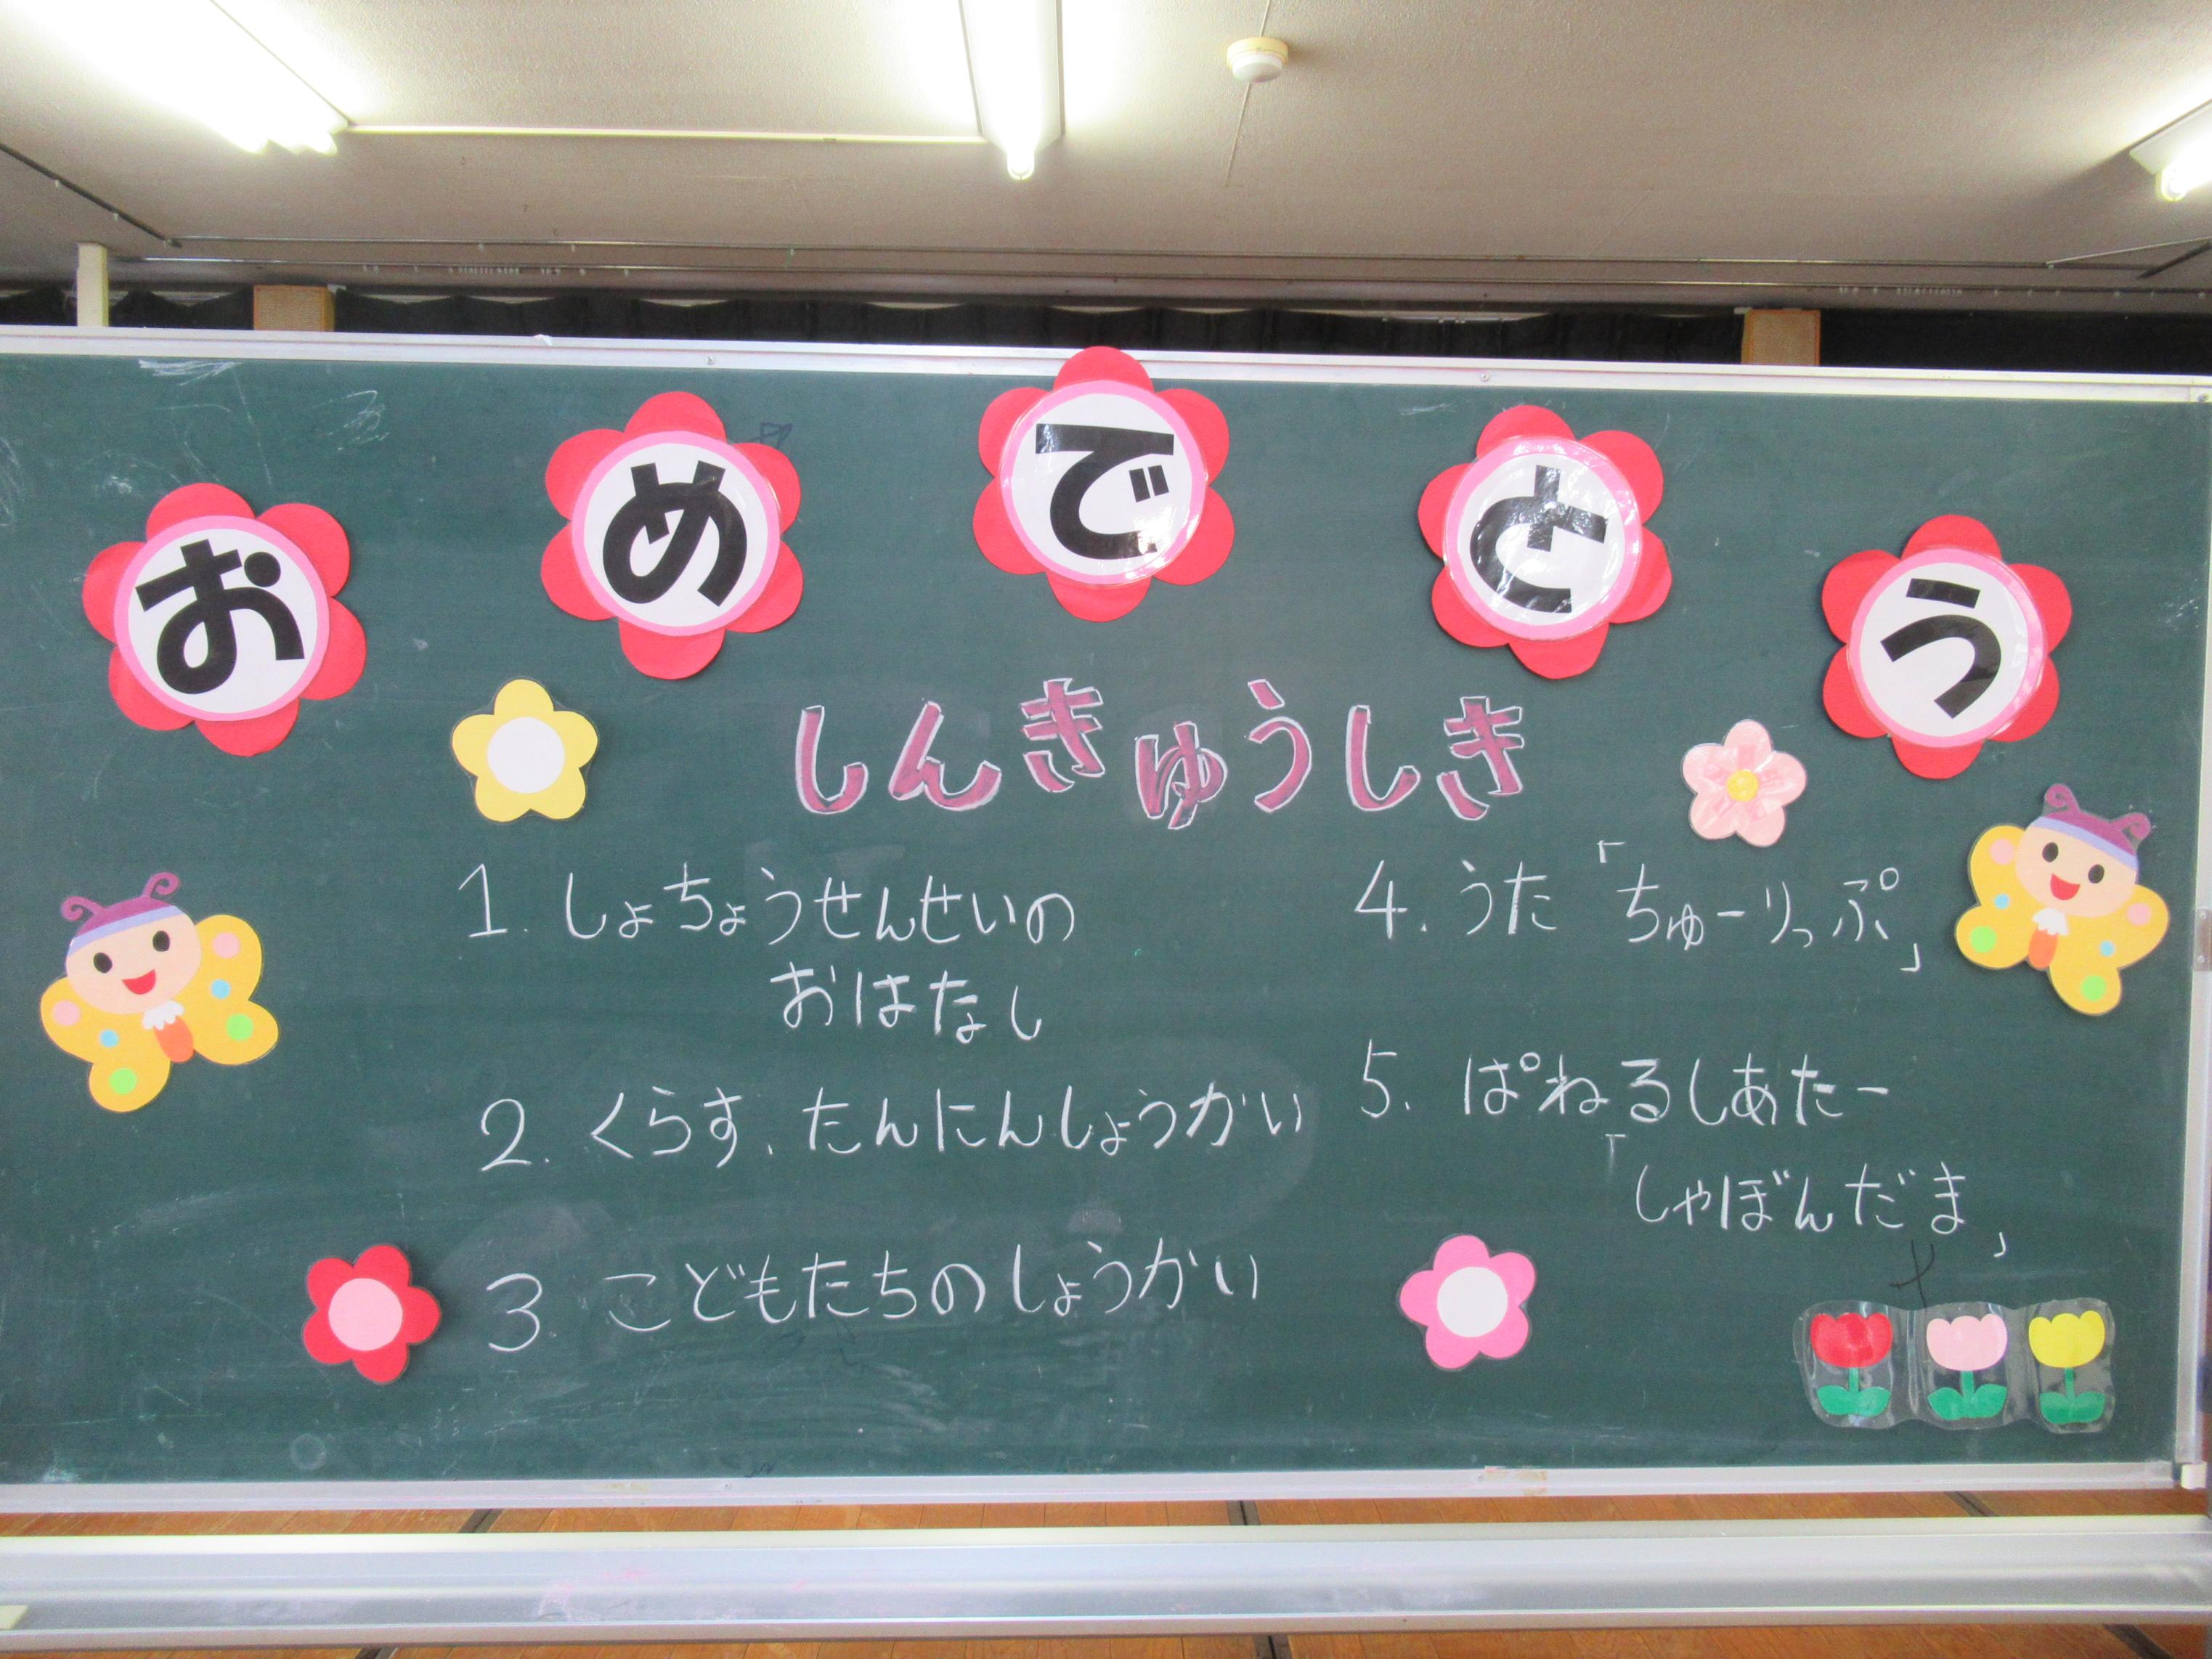 おめでとう
しんきゅうしき
1. しょちょうせんせいの
おはなし
2. くらす、たんにんしょうかい
3 こどもたちのしょうかい
4. うた「ちゅーりっぷ」
5. ぱねるしあたー
「しゃぼんだま」